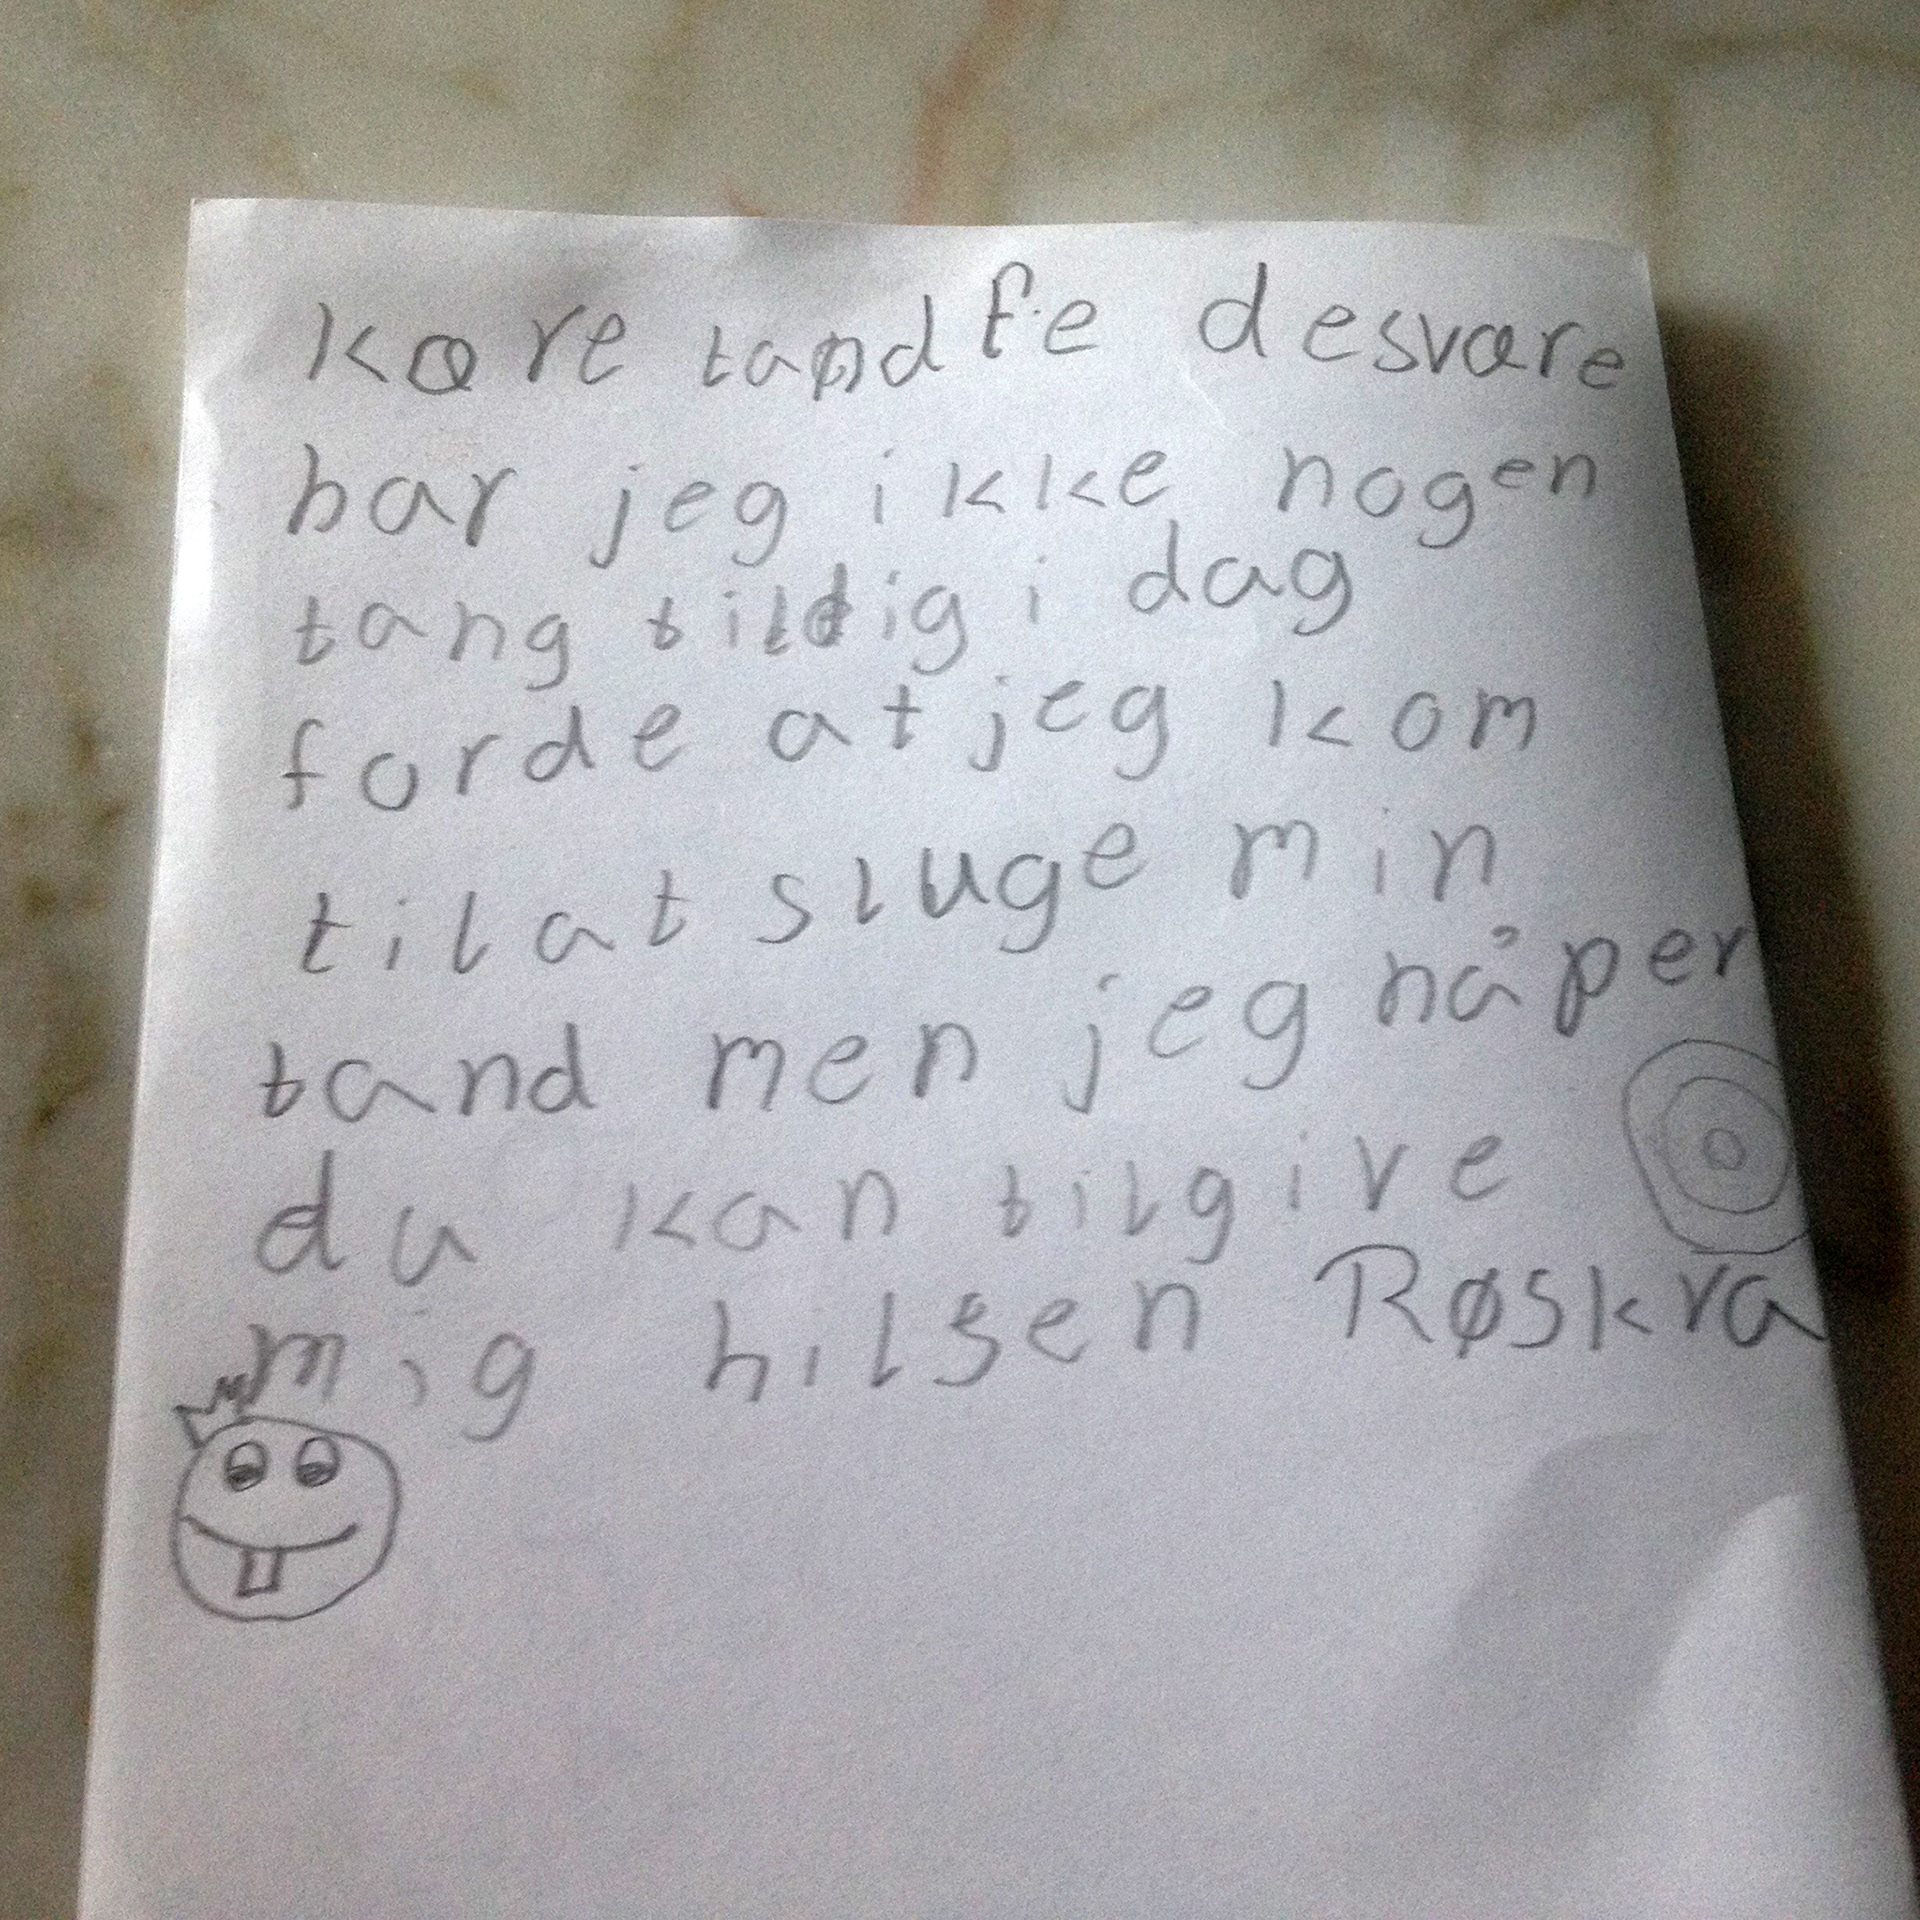 kære tandfe desværre
har jeg ikke nogen
tang til dig i dag
forde at jeg kom
til at sluge min
tand men jeg håper
du kan tilgive
mig hilsen Røskva